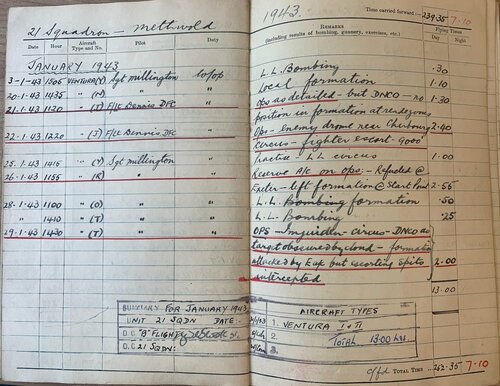 21 Squadron - Methwold
Date Hour Aircraft Type and No. Pilot Duty
JANUARY 1943
3-1-43 1505 VENTURA(Y) Sgt Millington W/op
20-1-43 1435 " (N) " "
21-1-43 1120 " (J) F/Lt Dennis DFC "
22-1-43 1220 " (J) F/Lt Dennis DFC "
25-1-43 1415 " (Y) Sgt Millington "
26-1-43 1155 " (R) " "
28-1-43 1100 " (O) " "
" 1410 " (T) " "
29-1-43 1430 " (T) " "
SUMMARY FOR JANUARY 1943
UNIT 21 SQDN DATE:-
O.C "B" FLIGHT
O.C 21 SQDN:-
1943.
Time carried forward:- 239.35 7-10
REMARKS
(including results of bombing, gunnery, exercises, etc.)
Flying Times
Day Night
L.L. Bombing .30
Local formation 1.10
Ops as detailed - but DNCO - no 1.30
position in formation at rendezvous
Ops - Enemy drome near Cherbourg 2.40
Circus - fighter escort - good
Practise - L.L circus 1.00
Reserve A/c on ops:- Refueled @
Exeter - left formation @ Start Point 2.55
L.L. Bombing formation .50
L.L. Bombing .25
OPS - Imjuiden - Circus - DNCO as
target obscured by cloud - formation
attacked by E/a/c but escorting Spits 2.00
intercepted
13.00
AIRCRAFT TYPES
1. VENTURA I & II
2. TOTAL 13.00 hrs
c/fd TOTAL TIME 252.35 7-10